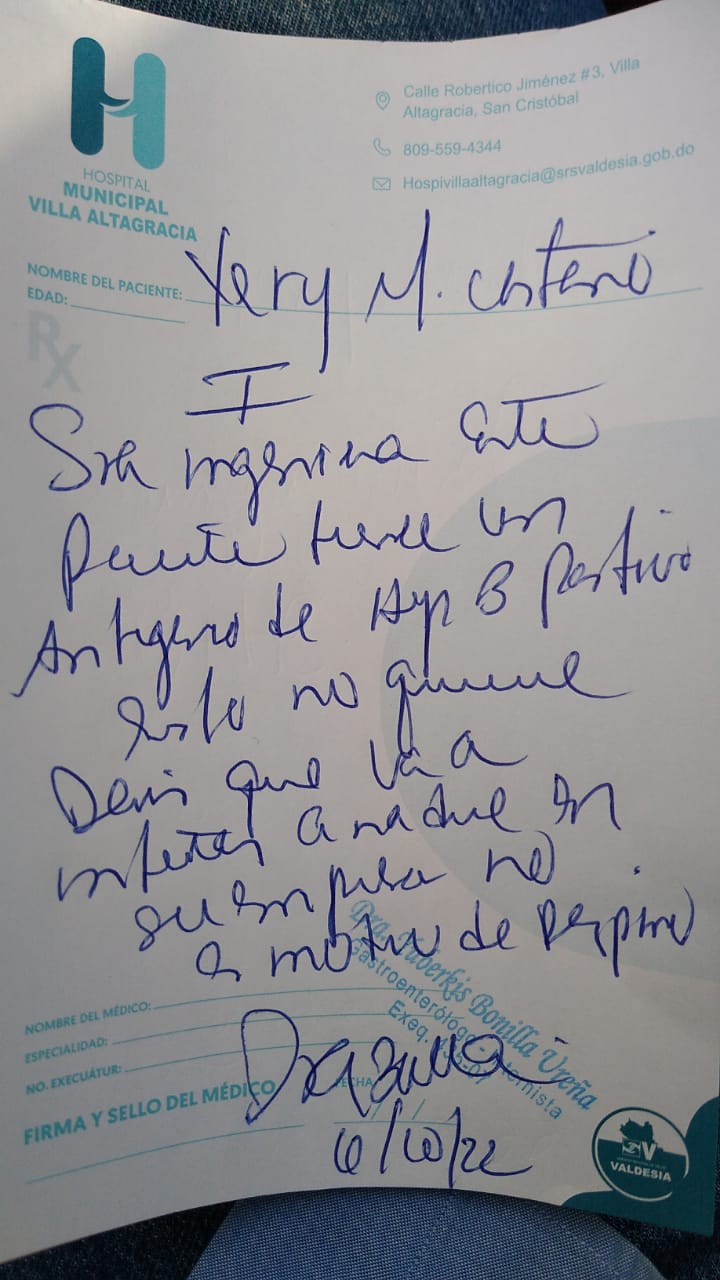 HOSPITAL
MUNICIPAL
VILLA ALTAGRACIA
Calle Robertico Jiménez #3, Villa
Altagracia, San Cristóbal
809-559-4344
Hospivillaaltagracia@srsvaldesia.gob.do
NOMBRE DEL PACIENTE: Yery M.
EDAD:
Rx
I
Sra ingeniera Este
paciente tiene un
Antigeno de Hep B positivo
Esto no quiere
Decir que va a
infectar a nadie en
su empresa no
es motivo de
NOMBRE DEL MÉDICO:
ESPECIALIDAD:
NO. EXECUÁTUR:
FIRMA Y SELLO DEL MÉDICO
FECHA
Dra. Yuberkis Bonilla Ureña
Gastroenteróloga-Internista
Exeq.
Dra Bonilla
6/10/22
SV
VALDESIA